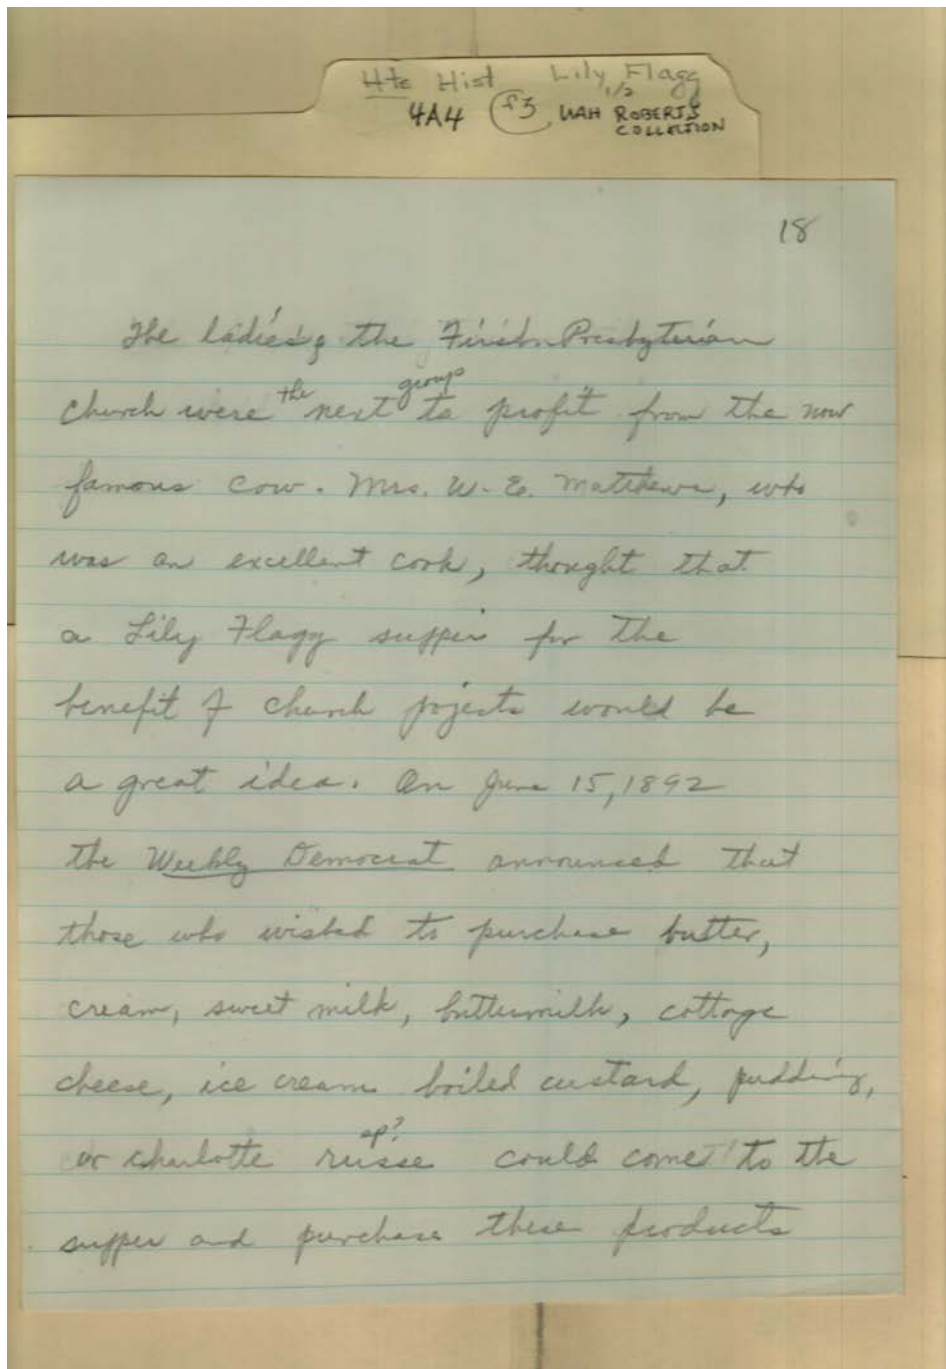 Hts Hist Lily Flagg
1/2
4A4 f3 UAH ROBERTS
COLLECTION
18
The ladies of the First Presbyterian
church were the next group to profit from the now
famous cow. Mrs. W. E. Matthews, who
was an excellent cook, thought that
a Lily Flagg supper for the
benefit of church projects would be
a great idea. On June 15, 1892
the Weekly Democrat announced that
those who wished to purchase butter,
cream, sweet milk, buttermilk, cottage
cheese, ice cream boiled custard, pudding,
sp?
or charlotte russe could come to the
supper and purchase these products